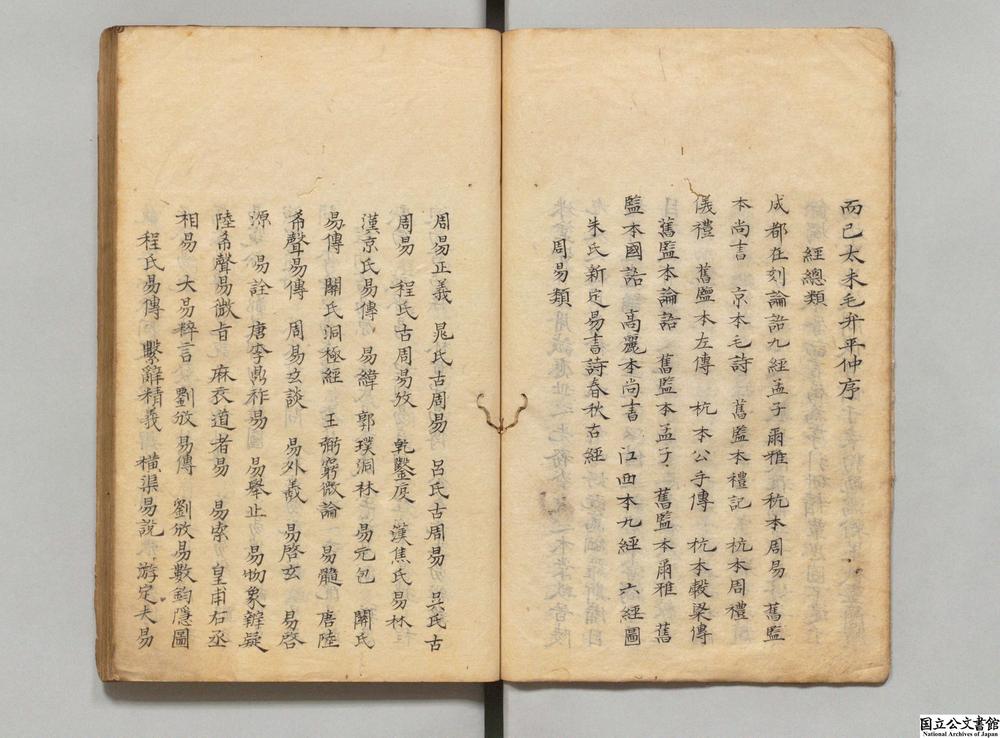 而已太末毛幵平仲序
經總類
成都石刻論語九經孟子爾雅　杭本周易　舊監
本尚書　京本毛詩　舊監本禮記　杭本周禮
儀禮　舊監本左傳　杭本公羊傳　杭本穀梁傳
舊監本論語　舊監本孟子　舊監本爾雅　舊
監本國語　高麗本尚書　江西本九經　六經圖
朱氏新定易書詩春秋古經
周易類
周易正義　晁氏古周易　呂氏古周易　吳氏古
周易　程氏古周易攷　乾鑿度　漢焦氏易林
漢京氏易傳　易緯　郭璞洞林　易元包　關氏
易傳　關氏洞極經　王弼窮微論　易髓　唐陸
希聲易傳　周易玄談　易外義　易啓玄　易啓
源　易詮　唐李鼎祚易　易舉止　易物象辨疑
陸希聲易微旨　麻衣道者易　易索　皇甫右丞
相易　大易粹言　劉攽易傳　劉攽易數鉤隱圖
程氏易傳　繫辭精義　橫渠易說　游定夫易
国立公文書館
National Archives of Japan